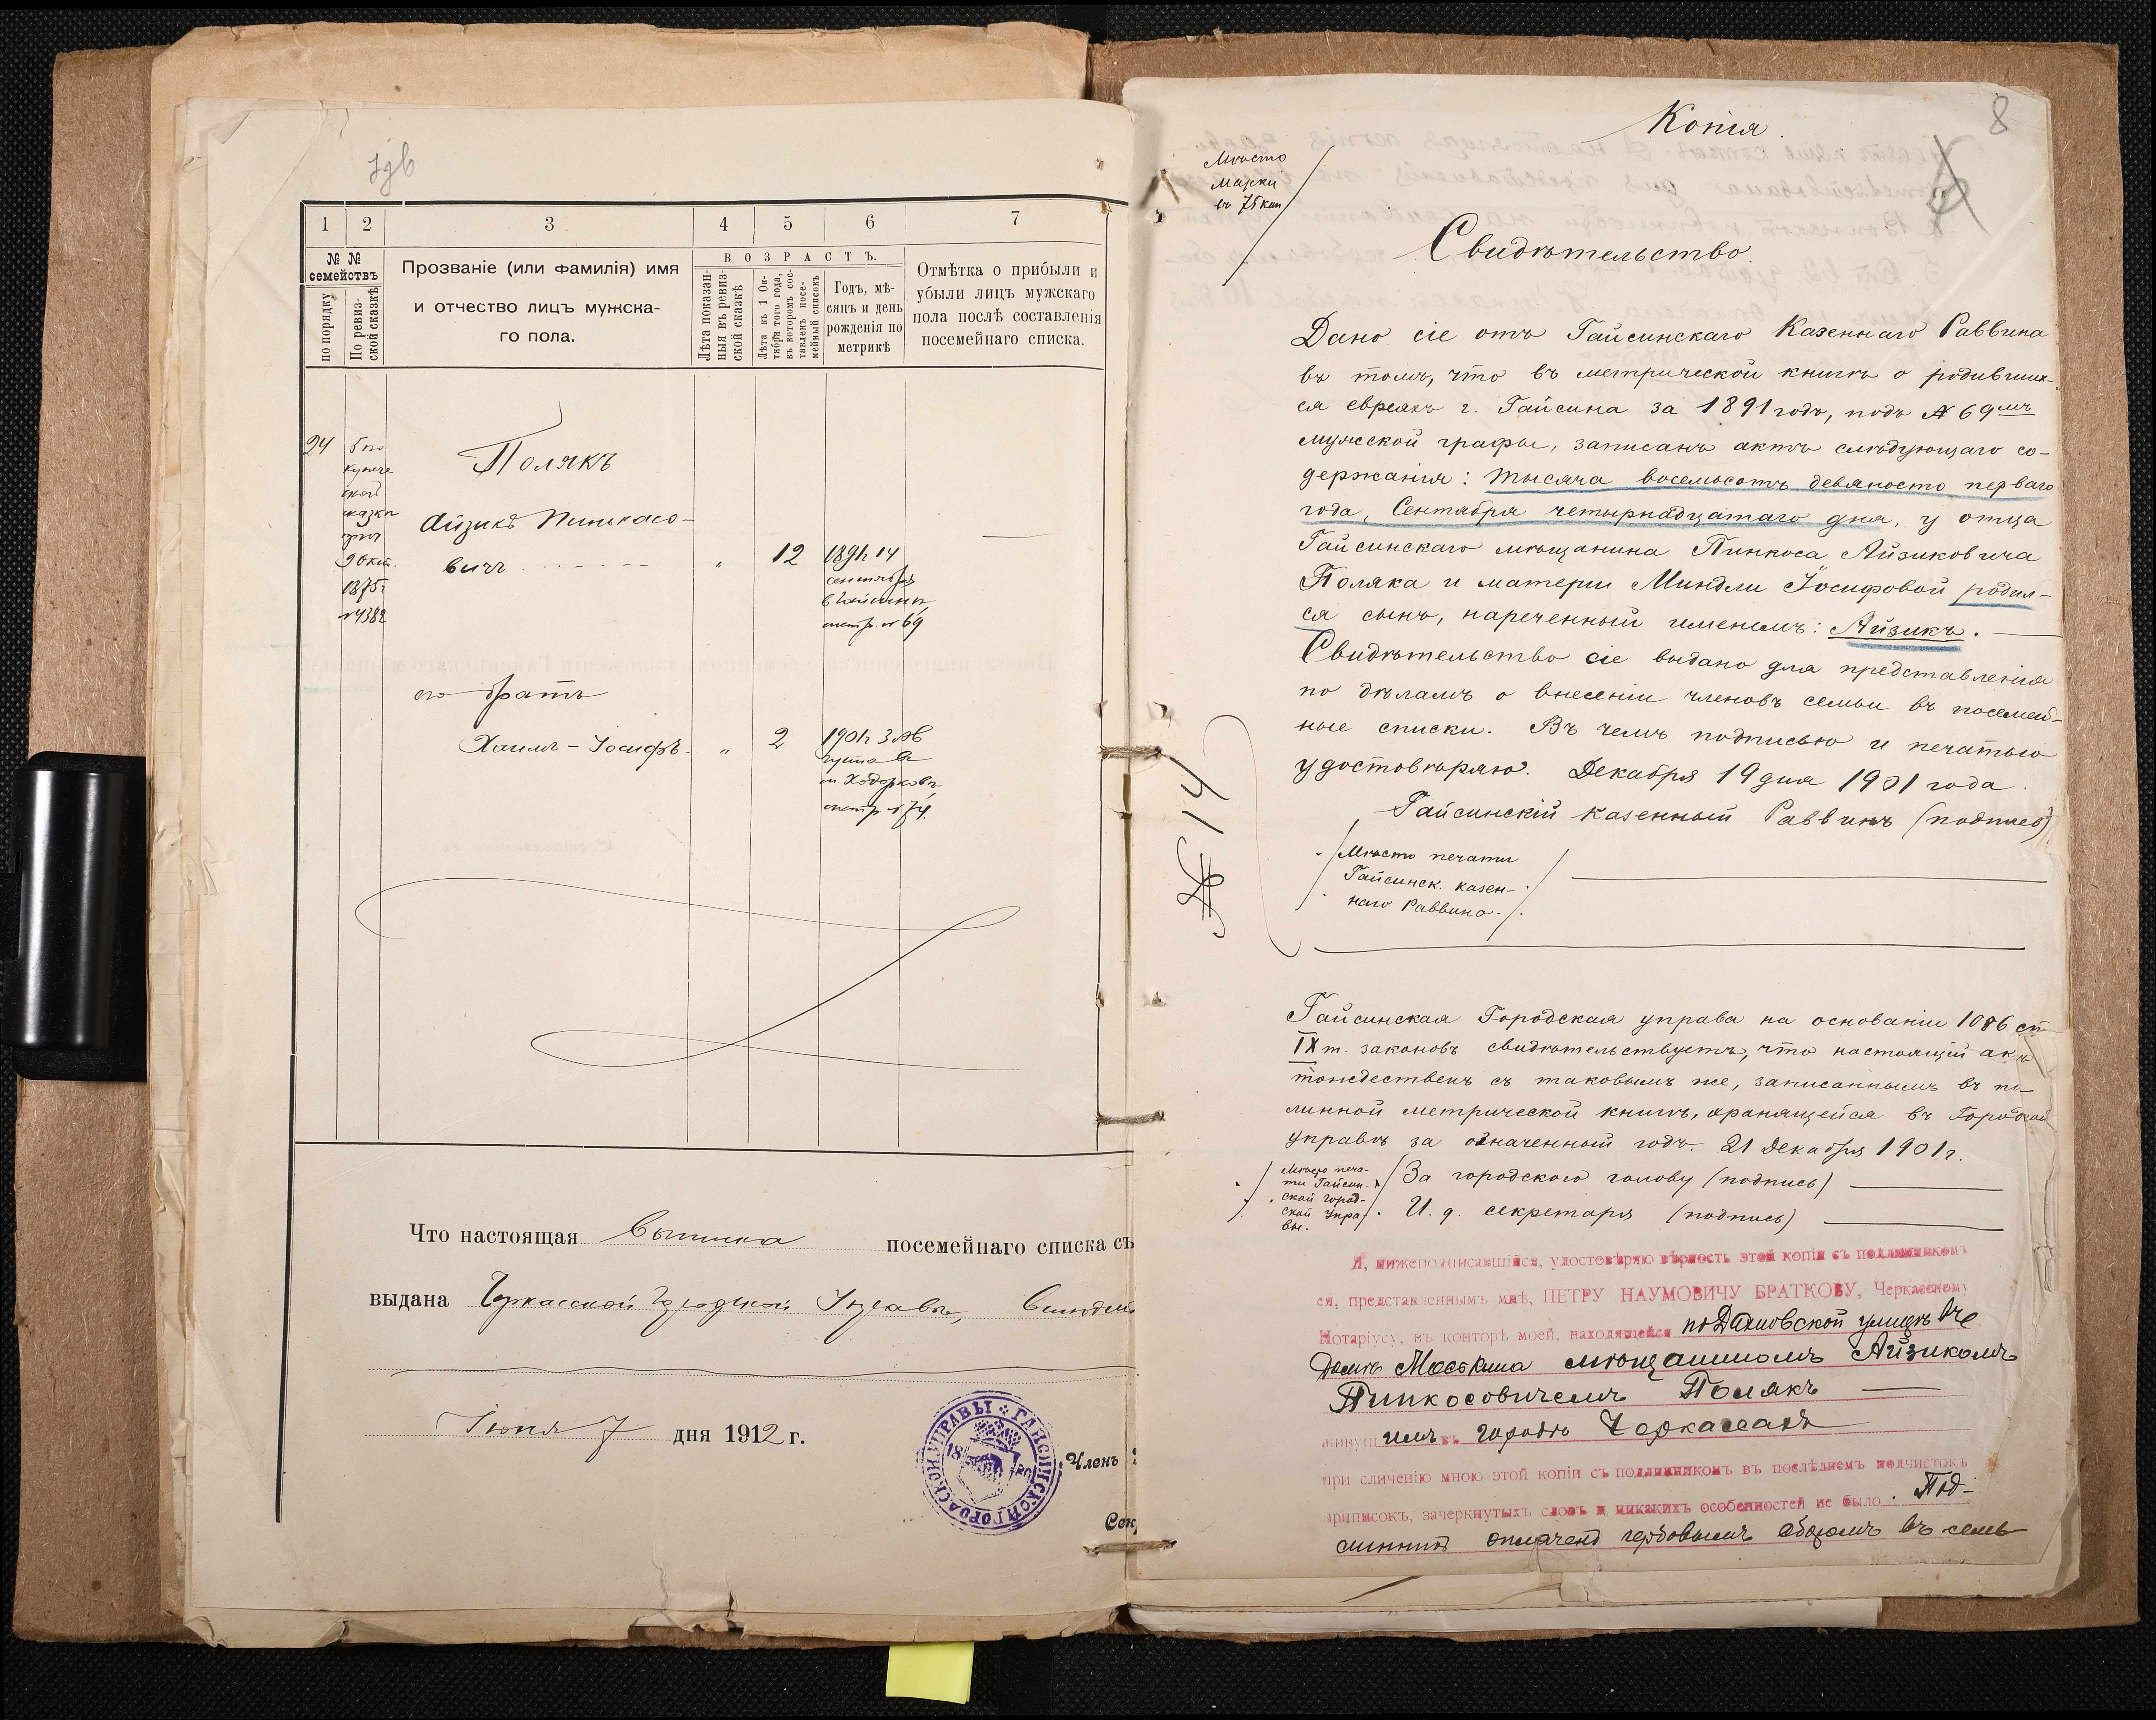 1 2 3 4 5 6 7
№ №
семействъ
по порядку
По ревиз-
ской сказкѣ
Прозваніе (или фамилія) имя
и отчество лицъ мужска-
го пола.
ВОЗРАСТЪ.
Лѣта показан-
ныя въ ревиз-
ской сказкѣ
Лѣта къ 1 Ок-
тября того года,
въ которомъ сос-
тавленъ посе-
мейный списокъ
Годъ, мѣ-
сяцъ и день
рожденія по
метрикѣ
Отмѣтка о прибыли и
убыли лицъ мужскаго
пола послѣ составленія
посемейнаго списка.
24
купече
ской
сказки
1875г
№4382
Полякъ
Айзикъ Пинкасо-
вичъ
" 12 1891г 14
сентября
метр. № 69
его братъ
Хаимъ-Іосифъ " 2 1901г 3 Ав
густа в
м. Ходорковѣ,
метр. № 74.
Что настоящая посемейнаго списка съ
выдана Черкасской Городской Управѣ,
Іюня 7 дня 1912 г.
ГАЙСИНСКОЙ ГОРОДСКОЙ УПРАВЫ
Членъ
Сек
8
Копія.
Мѣсто
Марки
въ 75 коп
Свидѣтельство.
Дано сіе отъ Гайсинскаго Казеннаго Раввина
въ томъ, что въ метрической книгѣ о родивших-
ся евреяхъ г. Гайсина за 1891 годъ, подъ № 69мъ
мужской графы, записанъ актъ слѣдующаго со-
держанія: тысяча восемьсотъ девяносто перваго
года, Сентября четырнадцатаго дня, у отца
Гайсинскаго мѣщанина Пинкоса Айзиковича
Поляка и матери Миндли Іосифовой родил-
ся сынъ, нареченный именемъ: Айзикъ.
Свидѣтельство сіе выдано для представленія
по дѣламъ о внесеніи членовъ семьи въ посемей-
ные списки. Въ чемъ подписью и печатью
удостовѣряю. Декабря 19 дня 1901 года.
Гайсинскій Казенный Раввинъ (подпись)
Мѣсто печати
Гайсинск. казен-
наго Раввина.
№ 14
Гайсинская Городская управа на основаніи 1086 ст
IX т. законовъ свидѣтельствуетъ, что настоящій актъ
тождественъ съ таковымъ же, записаннымъ въ по-
длинной метрической книгѣ, хранящейся въ Городской
управѣ за означенный годъ. 21 Декабря 1901 г.
Мѣсто печа-
ти Гайсин-
ской город-
ской Упра
вы.
За городского голову (подпись)
И. д. секретаря (подпись)
Я, нижеподписавшійся, удостовѣряю вѣрность этой копіи съ подлинникомъ
ея, представленнымъ мнѣ, ПЕТРУ НАУМОВИЧУ БРАТКОВУ, Черкасскому
Нотаріусу, въ конторѣ моей, находящейся по Дахновской улицѣ въ
домѣ мѣщаниномъ Айзикомъ
Пинкосовичемъ Полякъ
живущимъ въ городѣ Черкассахъ
при сличенію мною этой копіи съ подлинникомъ въ послѣднемъ подчистокъ
приписокъ, зачеркнутыхъ словъ и никакихъ особенностей не было. Под-
линникъ оплаченъ гербовымъ сборомъ въ семь-